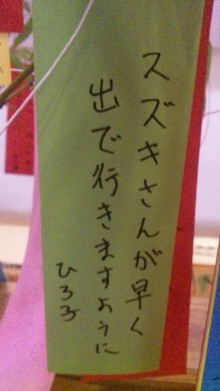 スズキさんが早く
出で行きますように
ひろ子